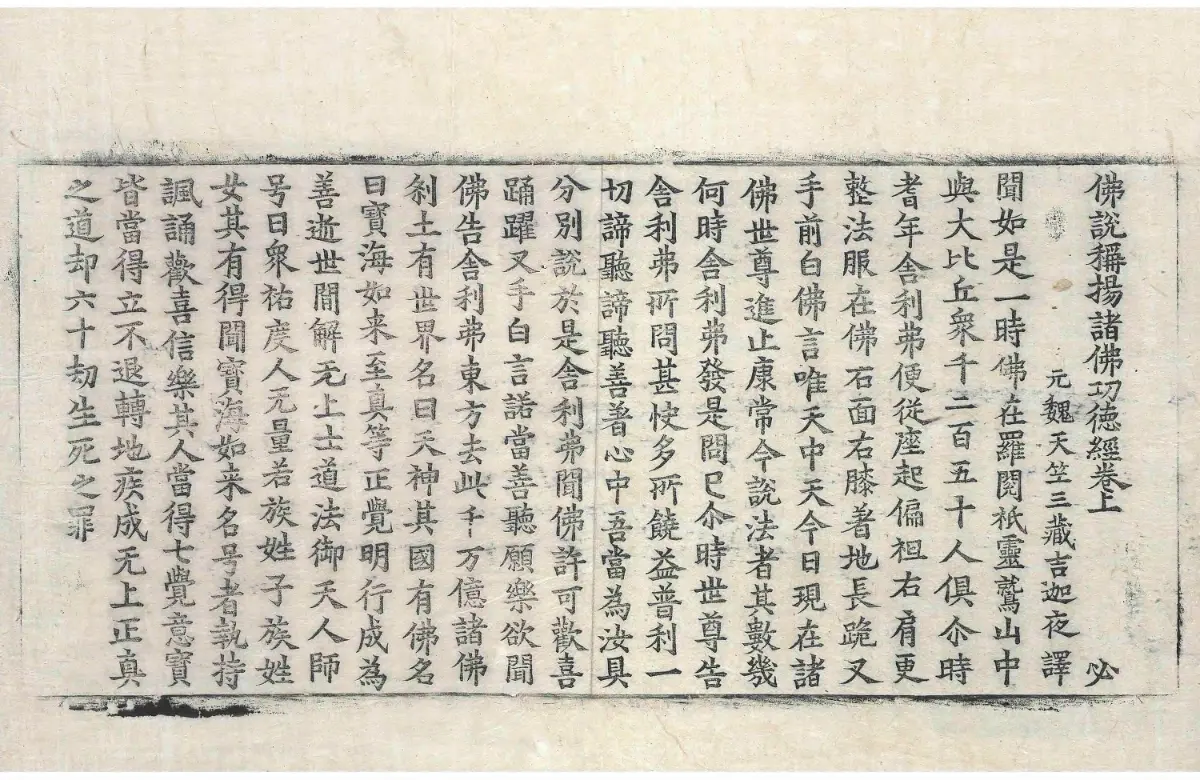 佛說稱揚諸佛功德經卷上 必
元魏天竺三藏吉迦夜譯
聞如是一時佛在羅閱祇靈鷲山中
與大比丘衆千二百五十人俱尒時
耆年舍利弗便從座起偏袒右肩更
整法服在佛石面右膝著地長跪叉
手前白佛言唯天中天今日現在諸
佛世尊進止康常今說法者其數幾
何時舍利弗發是問已尒時世尊告
舍利弗所問甚快多所饒益普利一
切諦聽諦聽善著心中吾當為汝具
分別說於是舍利弗聞佛許可歡喜
踊躍叉手白言諾當善聽願樂欲聞
佛告舍利弗東方去此千万億諸佛
刹土有世界名曰天神其國有佛名
曰寶海如来至真等正覺明行成為
善逝世間解无上士道法御天人師
号曰衆祐度人无量若族姓子族姓
女其有得聞寶海如来名号者執持
諷誦歡喜信樂其人當得七覺意寶
皆當得立不退轉地疾成无上正真
之道却六十劫生死之罪